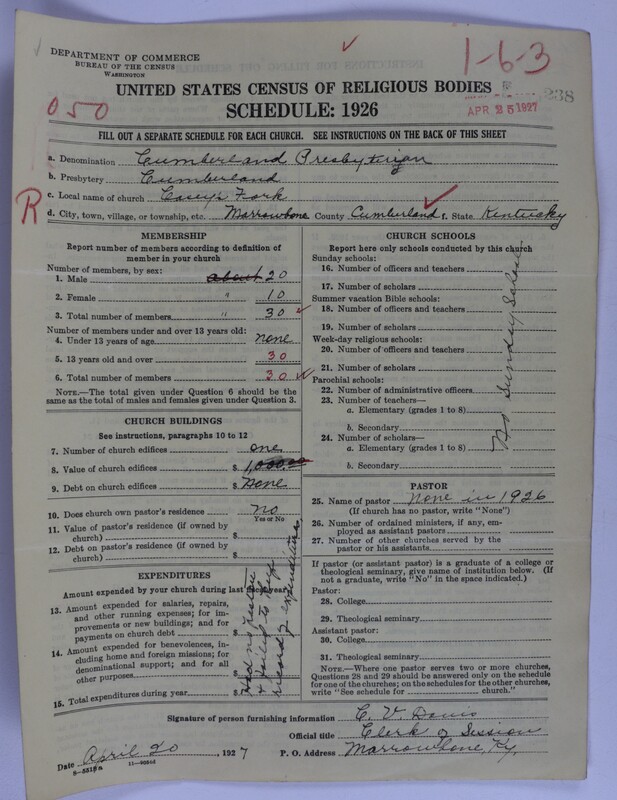 DEPARTMENT OF COMMERCE
BUREAU OF THE CENSUS
WASHINGTON
1-6-3
UNITED STATES CENSUS OF RELIGIOUS BODIES
238
050
SCHEDULE: 1926
APR 25 1927
FILL OUT A SEPARATE SCHEDULE FOR EACH CHURCH. SEE INSTRUCTIONS ON THE BACK OF THIS SHEET
a. Denomination Cumberland Presbyterian
b. Presbytery Cumberland
c. Local name of church Caseys Fork
R
d. City, town, village, or township, etc. Marrowbone County Cumberland f. State Kentucky
MEMBERSHIP
Report number of members according to definition of
member in your church
Number of members, by sex:
1. Male about 20
2. Female " 10
3. Total number of members " 30
Number of members under and over 13 years old:
4. Under 13 years of age none
5. 13 years old and over 30
6. Total number of members 30
NOTE.—The total given under Question 6 should be the
same as the total of males and females given under Question 3.
CHURCH BUILDINGS
See instructions, paragraphs 10 to 12
7. Number of church edifices one
8. Value of church edifices $ 1,000.00
9. Debt on church edifices $ None
10. Does church own pastor's residence No
Yes or No
11. Value of pastor's residence (if owned by
church) $
12. Debt on pastor's residence (if owned by
church) $
EXPENDITURES
Amount expended by your church during last fiscal year:
13. Amount expended for salaries, repairs,
and other running expenses; for im-
provements or new buildings; and for
payments on church debt $
14. Amount expended for benevolences, in-
cluding home and foreign missions; for
denominational support; and for all
other purposes $
15. Total expenditures during year $
Had no pastor
& failed to keep
record of expenditures
CHURCH SCHOOLS
Report here only schools conducted by this church
Sunday schools:
16. Number of officers and teachers
17. Number of scholars
Summer vacation Bible schools:
18. Number of officers and teachers
19. Number of scholars
Week-day religious schools:
20. Number of officers and teachers
21. Number of scholars
Parochial schools:
22. Number of administrative officers
23. Number of teachers—
a. Elementary (grades 1 to 8)
b. Secondary
24. Number of scholars—
a. Elementary (grades 1 to 8)
b. Secondary
No Sunday School
PASTOR
25. Name of pastor None in 1926
(If church has no pastor, write "None")
26. Number of ordained ministers, if any, em-
ployed as assistant pastors
27. Number of other churches served by the
pastor or his assistants
If pastor (or assistant pastor) is a graduate of a college or
theological seminary, give name of institution below. (If
not a graduate, write "No" in the space indicated.)
Pastor:
28. College
29. Theological seminary
Assistant pastor:
30. College
31. Theological seminary
NOTE.—Where one pastor serves two or more churches,
Questions 28 and 29 should be answered only on the schedule
for one of the churches; on the schedules for the other churches,
write "See schedule for church."
Signature of person furnishing information C. V. Davis
Official title Clerk of Session
Date April 20 1927 P. O. Address Marrowbone, Ky.
8-5318a 11-90546